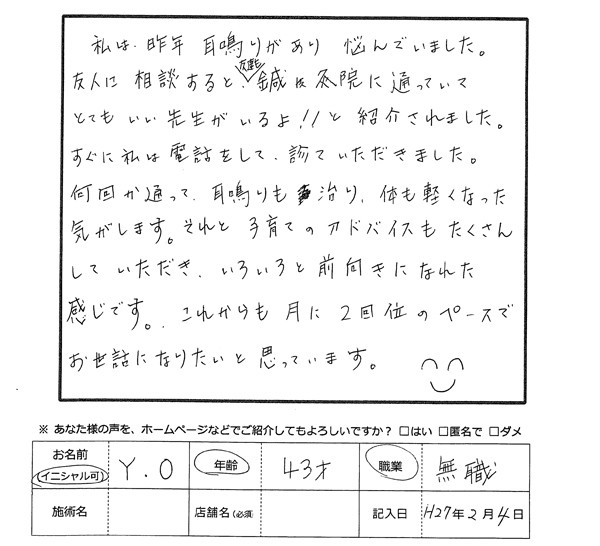 私は、昨年 耳鳴りがあり 悩んでいました。
友人に 相談すると、友達も 鍼灸院に 通っていて
とても いい 先生が いるよ!!と 紹介されました。
すぐに 私は 電話をして、診て いただきました。
何回か通って、耳鳴りも 治り、体も軽くなった
気がします。それと 子育ての アドバイスも たくさん
して いただき、いろいろと 前向きに なれた
感じです。これからも 月に 2回位の ペースで
お世話になりたいと 思っています。
※ あなた様の声を、ホームページなどでご紹介してもよろしいですか? □はい □匿名で □ダメ
お名前 (イニシャル可) Y.O 年齢 43才 職業 無職
施術名 店舗名(必須) 記入日 H27年2月4日